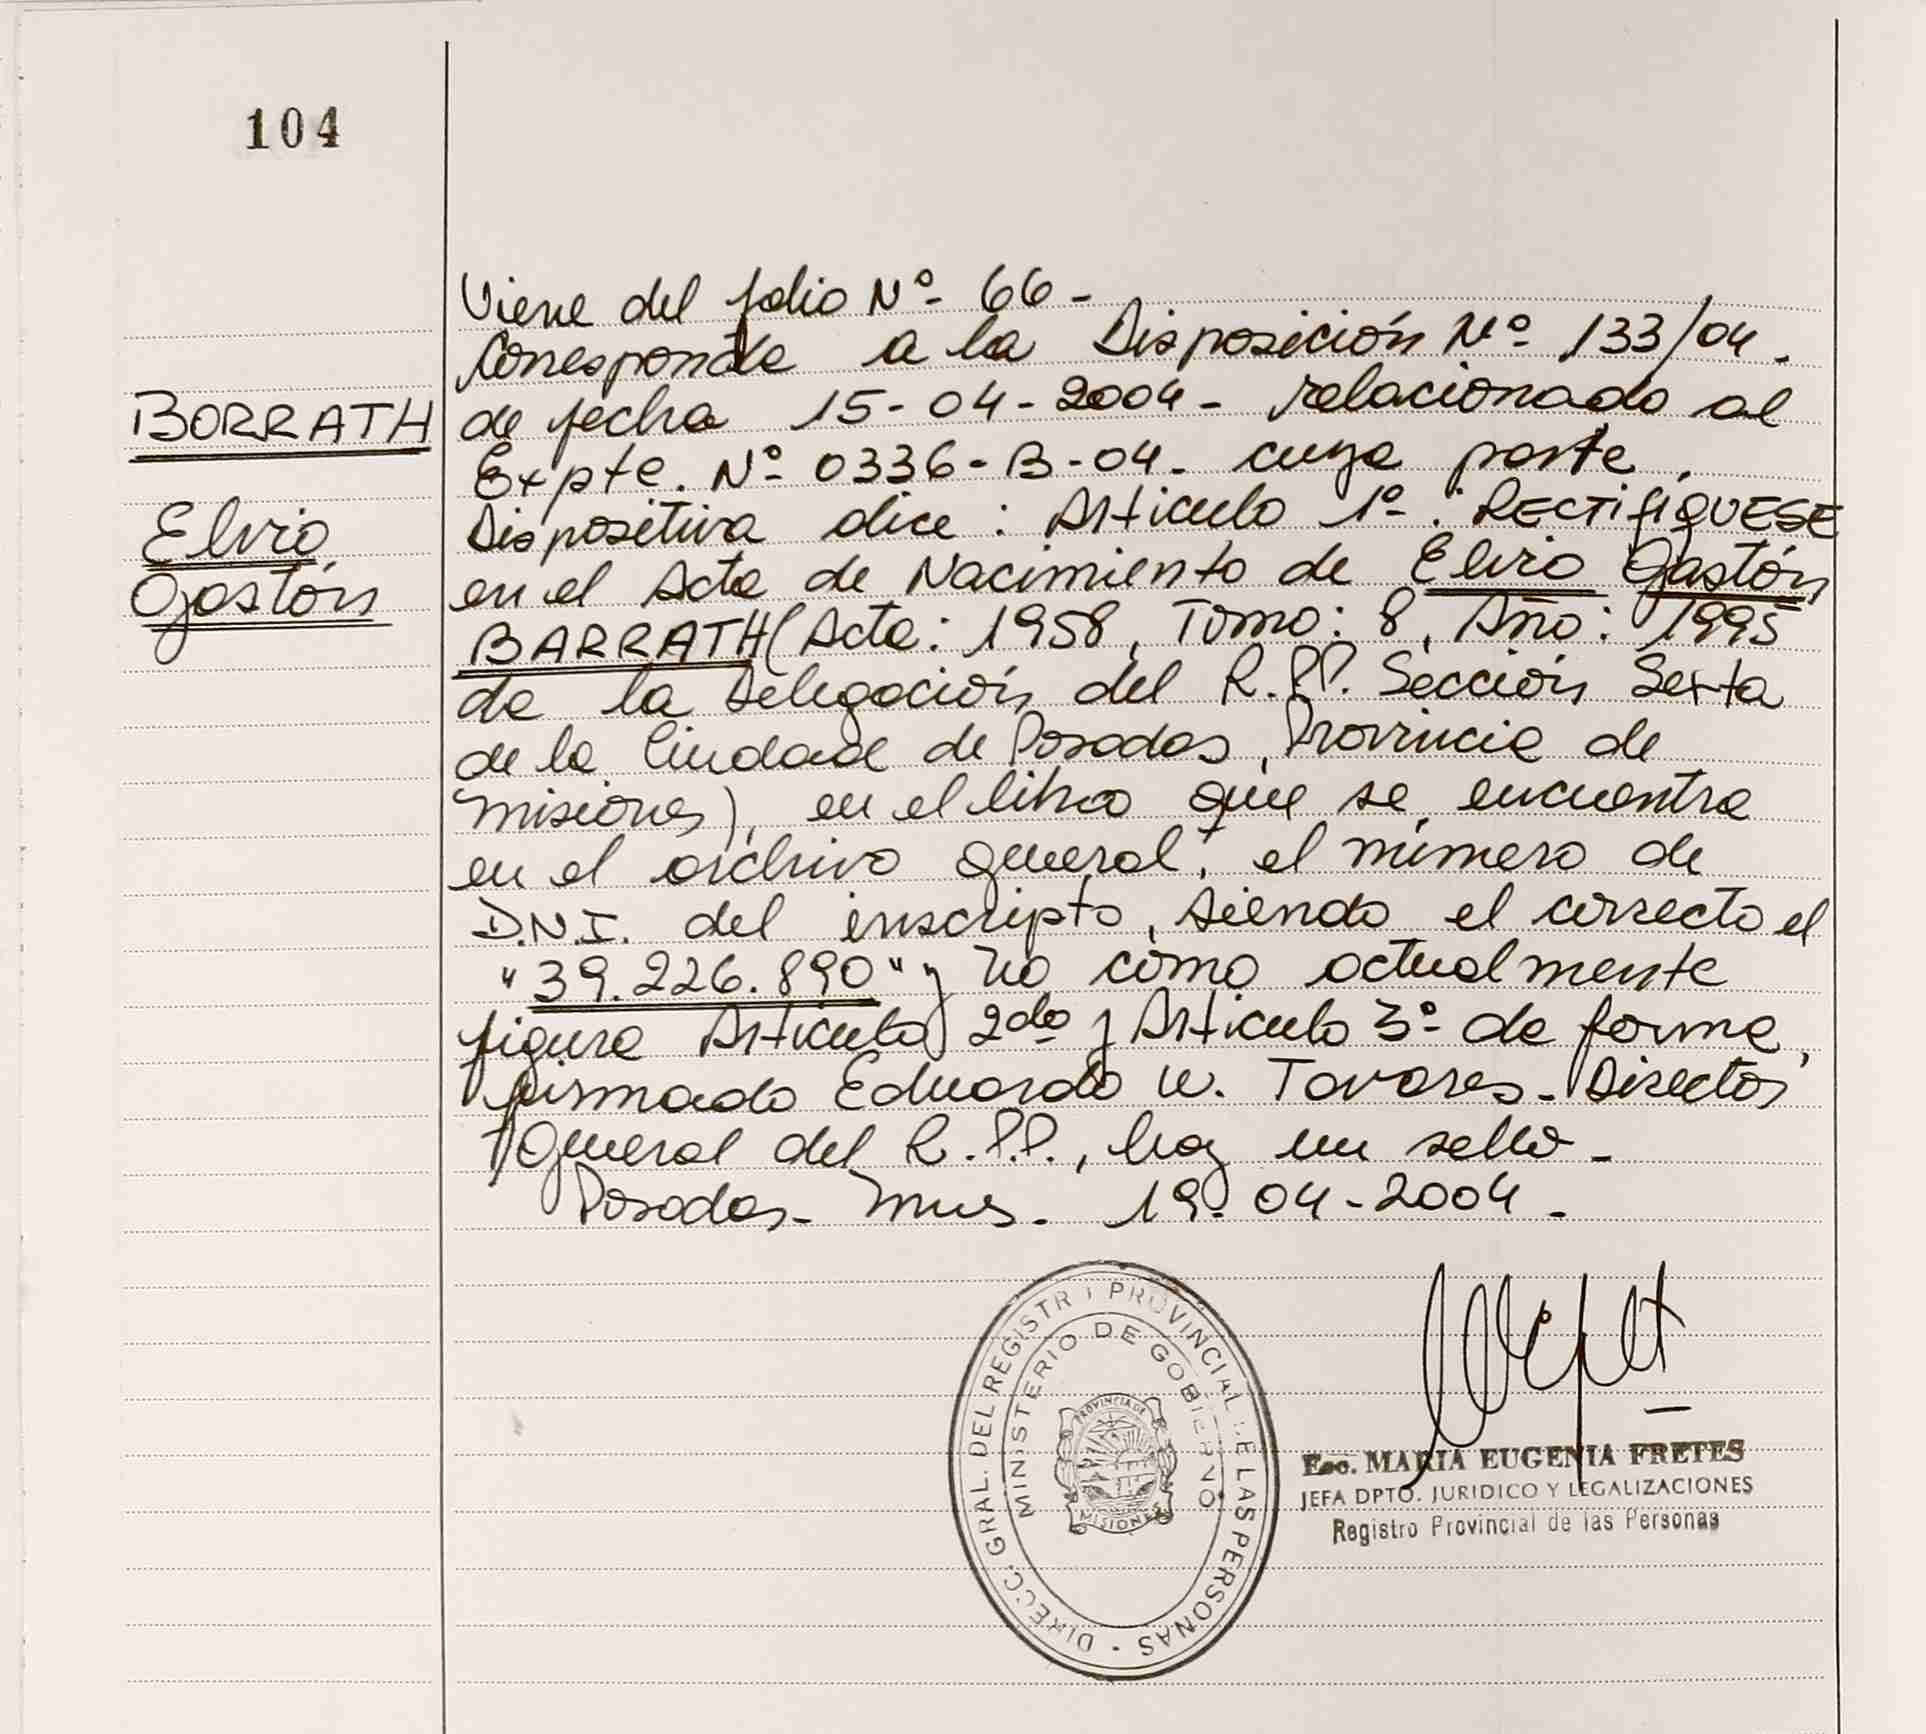 104
BORRATH
Elvio
Gastón
Viene del folio Nº 66-
Corresponde a la Disposición Nº 133/04.
de fecha 15-04-2004- relacionado al
Expte. Nº 0336-B-04- cuya parte
Dispositiva dice: Articulo 1º: RECTIFIQUESE
en el Acta de Nacimiento de Elvio Gastón
BARRATH (Acta: 1958, Tomo: 8, Año: 1995
de la Delegación del R.P.P. Sección Sexta
de la Ciudad de Posadas, Provincia de
Misiones), en el libro que se encuentra
en el archivo general, el número de
D.N.I. del inscripto, siendo el correcto el
"39.226.890" y no como actualmente
figura Articulo 2do y Articulo 3º de forma,
firmado Eduardo W. Tavares- Director
General del R.P.P., hay un sello-
Posadas- Mnes. 19-04-2004-
DIRECC. GRAL. DEL REGISTR PROVINCIAL DE LAS PERSONAS
MINISTERIO DE GOBIERNO
PROVINCIA DE
MISIONES
Esc. MARIA EUGENIA FRETES
JEFA DPTO. JURIDICO Y LEGALIZACIONES
Registro Provincial de las Personas